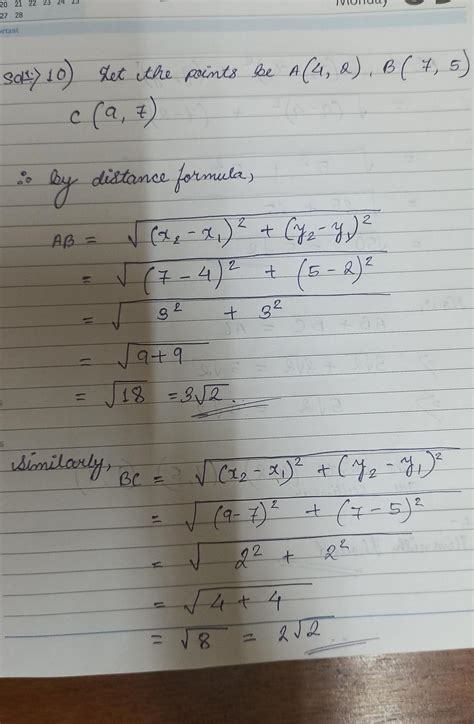 20 21 22 23 24 25
27 28
Monday
Sol:) 10) Let the points be A(4, 2), B(7, 5)
C(9, 7)
∴ by distance formula,
AB = √(x₂ - x₁)² + (y₂ - y₁)²
= √(7 - 4)² + (5 - 2)²
= √3² + 3²
= √9+9
= √18 = 3√2
Similarly, BC = √(x₂ - x₁)² + (y₂ - y₁)²
= √(9-7)² + (7-5)²
= √2² + 2²
= √4 + 4
= √8 = 2√2